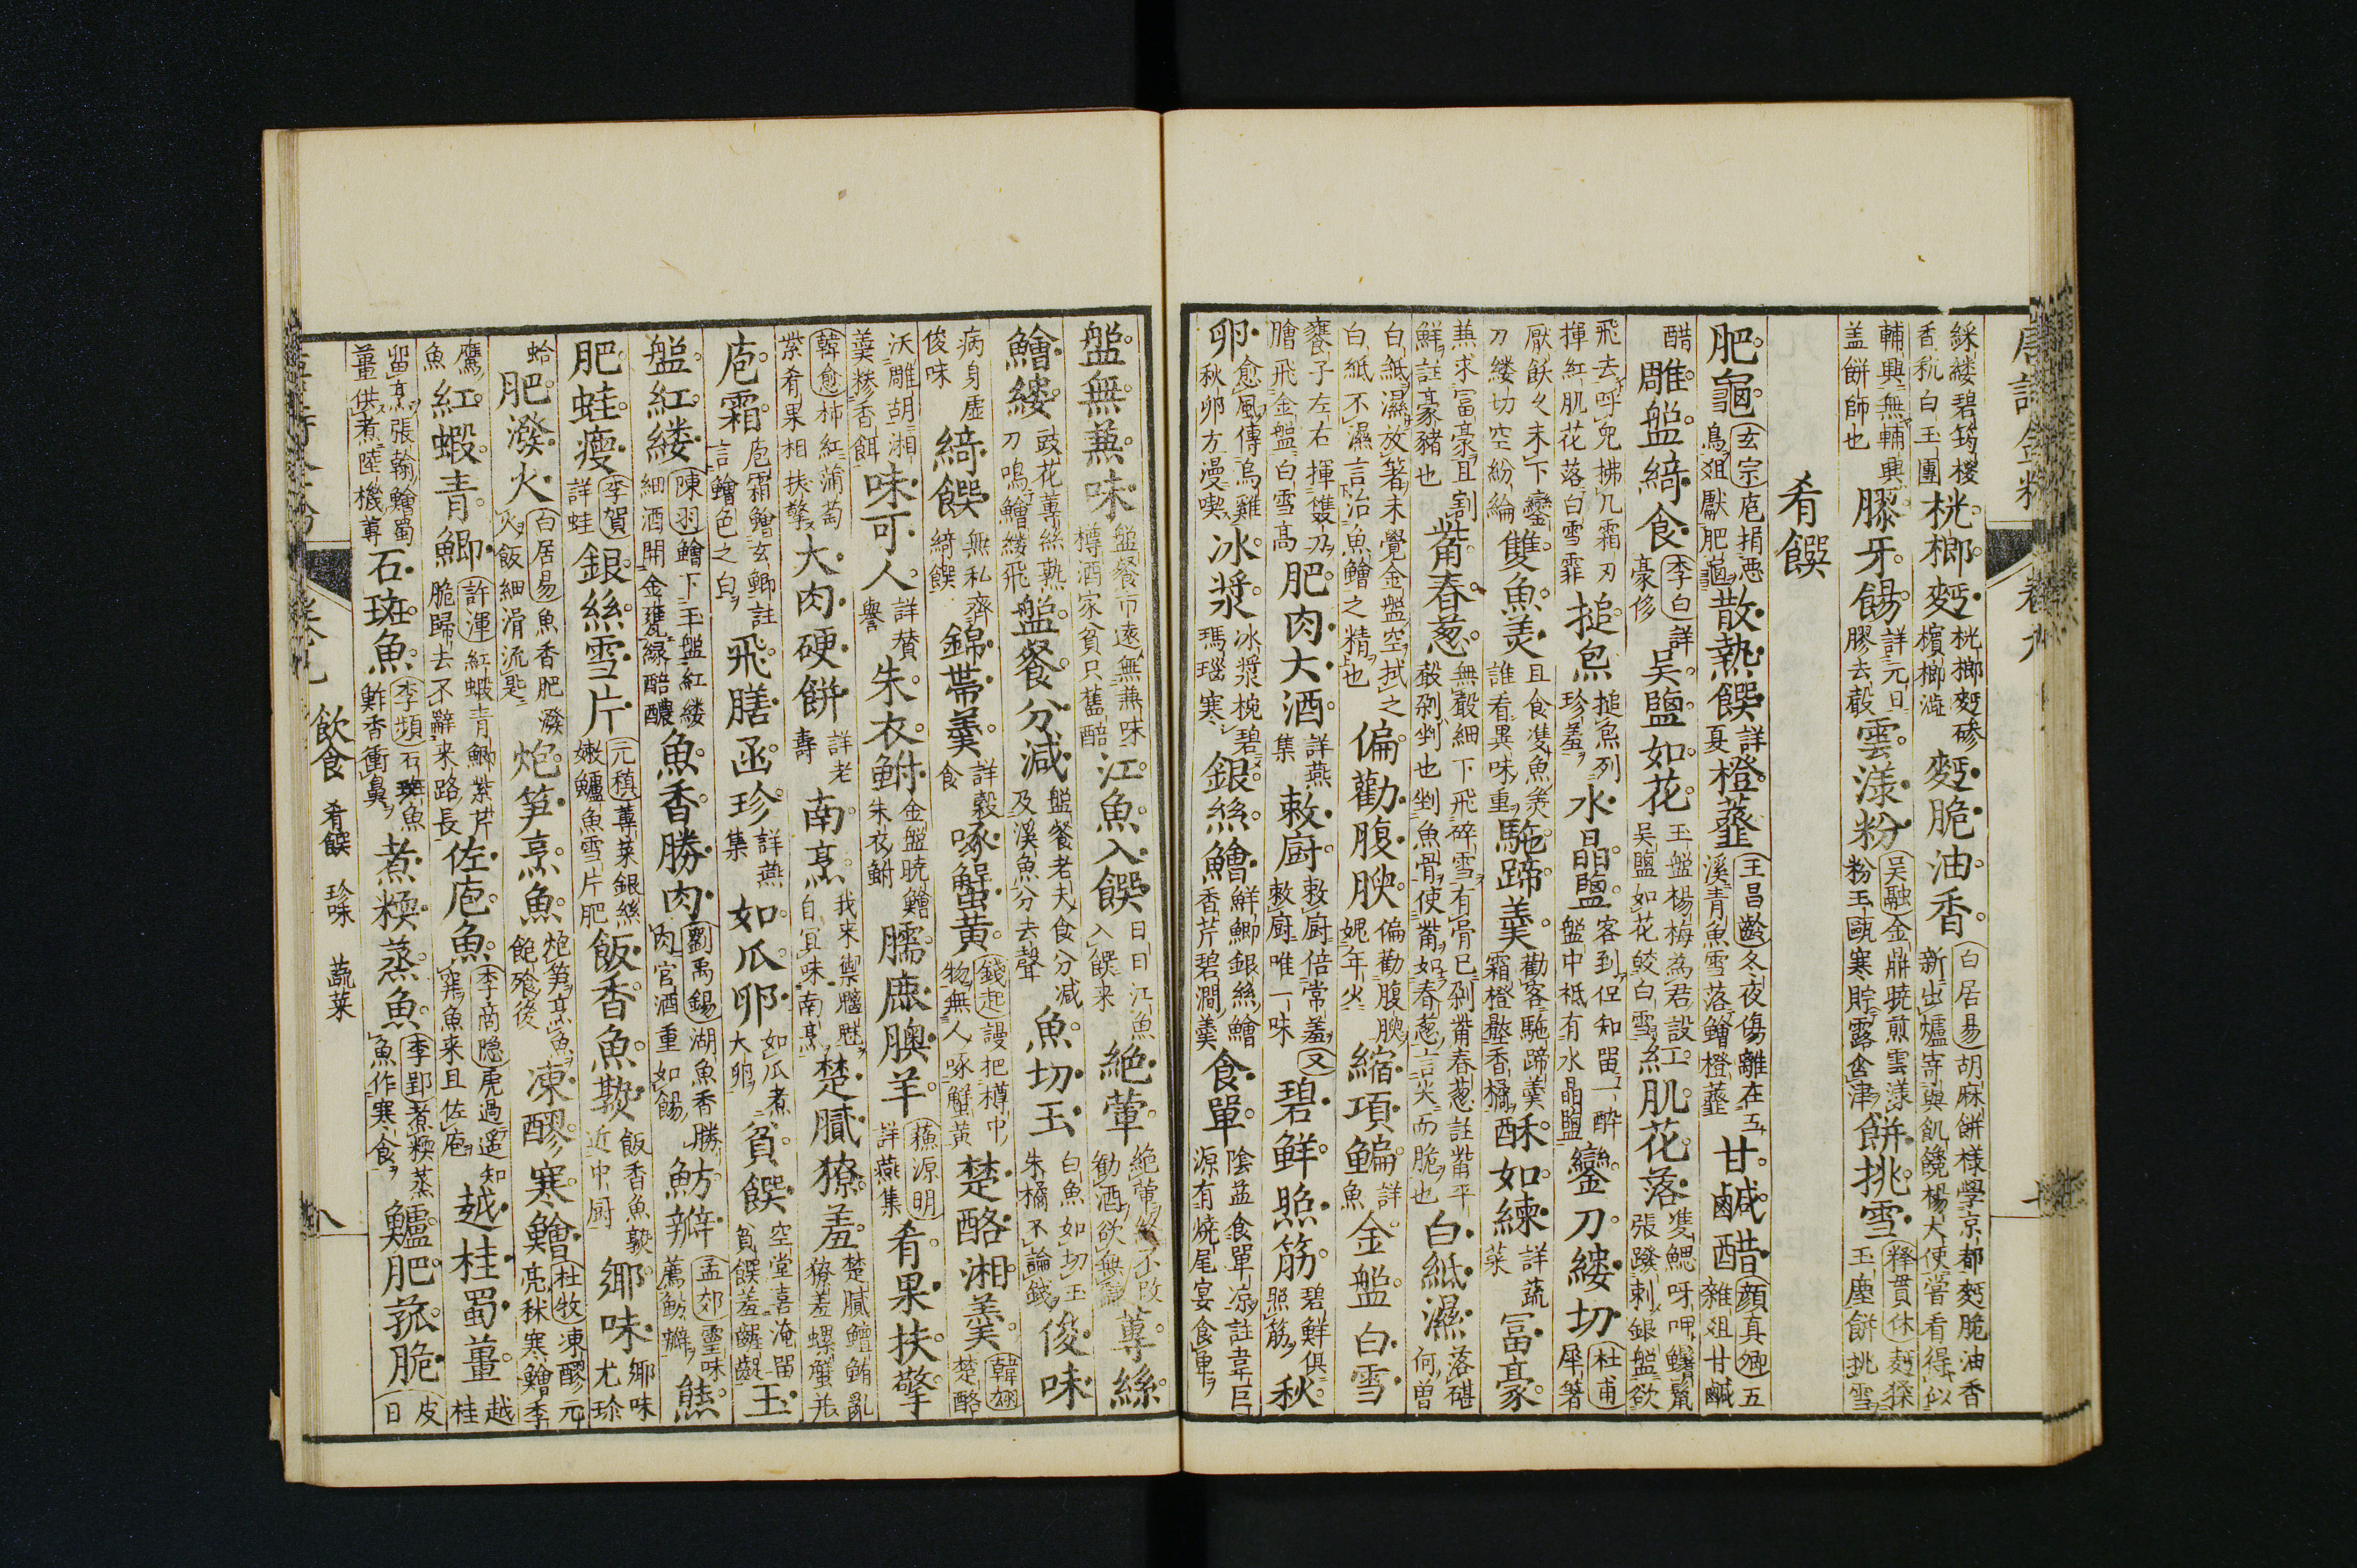 綵縷碧筠糉香秔白玉團 桄榔麪 桄榔麪磣檳榔澁 麪脆油香 白居易 胡麻餅様學京都麪脆油香新出爐寄與飢饞楊大使嘗看得似
輔興無輔興盖餅師也 膠牙餳 詳元日膠去殻 雲漾粉 吴融 金鼎暁煎雲漾粉玉甌寒貯露含津 餅挑雪 釋貫休 玉塵餅挑雪
肴饌
肥龜 玄宗 庖捐惡鳥爼獻肥龜 散熱饌 詳夏 橙虀 王昌齡 冬夜傷離在五溪青魚雪落鱠橙虀 甘鹹醋 顔真卿 五雜爼甘鹹
醋 雕盤綺食 李白 詳豪侈 吴鹽如花 玉盤楊梅為君設吴鹽如花皎白雪 紅肌花落 隻鰓呀呷鰭鬛張蹳剌銀盤欲
飛去呼兒拂几霜刃揮紅肌花落白雪霏 搥炰 搥炰列珍羞 水晶鹽 客到但知留一酔盤中秪有水晶鹽 鑾刀縷切 杜甫 犀箸
厭飫久未下鑾刀縷切空紛綸 雙魚羙 且食隻魚羙誰看異味重 駞蹄羹 勸客駞蹄羹霜橙壓香橘 酥如練 詳蔬菜 富豪
兼求冨豪且割鮮註豪豬也 觜春葱 無聲細下飛碎雪有骨已剁觜春葱註觜平聲剁剉也剉魚骨使觜如春葱言尖而脆也 白紙濕 落碪何曽
白紙濕放箸未覺金盤空拭之白紙不濕言治魚鱠之精也 偏勸腹腴 偏勸腹腴媿年火 縮項鯿 詳魚 金盤白雪
饔子左右揮雙刀膾飛金盤白雪高 肥肉大酒 詳燕集 敕厨 敕厨倍常羞敕厨唯一味 又 碧鮮照筋 碧鮮俱照筯 秋
卵 愈風傳烏雞秋卵方漫喫 冰漿 冰漿椀碧瑪瑙寒 銀絲鱠 鮮鯽銀絲鱠香芹碧澗羹 食單 陰益食單凉註韋巨源有燒尾宴食单
盤無兼味 盤餐市遠無兼味樽酒家貧只舊醅 江魚入饌 日日江魚入饌来 絶葷 絶葷終不改勸酒欲無詞 蓴絲
鱠縷 豉花蓴絲熟刀鳴鱠縷飛 盤餐分減 盤餐老夫食分減及溪魚分去聲 魚切玉 白魚如切玉朱橘不論錢 俊味
病身虚俊味 綺饌 無私齊綺饌 錦帯羹 詳穀食 啄蟹黄 錢起 謾把樽中物無人啄蟹黄 楚酪湘羔 韓翃 楚酪
沃雕胡湘羹糝香餌 味可人 詳賛譽 朱衣鮒 金盤暁鱠朱衣鮒 臑麃腝羊 蘇源明 詳燕集 肴果扶擎
韓愈 柿紅蒲萄紫肴果相扶擎 大肉硬餅 詳老壽 南烹 我来禦魑魅自宜味南烹 楚膩獠羞 楚膩鱣鮪亂獠羞螺蟹並
庖霜 庖霜鱠玄鯽註言鱠色之白 飛膳函珍 詳燕集 如瓜卵 如瓜煮大卵 貧饌 空堂喜淹留貧饌羞齷齪 玉
盤紅縷 陳羽 鱠下玉盤紅縷細酒開金甕緑醅醲 魚香勝肉 劉禹錫 湖魚香勝肉官酒重如餳 魴瓣 孟郊 靈味薦魴瓣 熊
肥蛙瘦 李賀 詳蛙 銀絲雪片 元稹 蓴菜銀絲嫩鱸魚雪片肥 飯香魚熟 飯香魚熟近中厨 鄉味 鄉味尤珍
蛤 肥潑火 白居易 魚香肥潑火飯細滑流匙 炮笋烹魚 炮笋烹魚飽飱後 凍醪寒鱠 杜牧 凍醪元亮秫寒鱠季
鷹魚 紅蝦青鯽 許渾 紅蝦青鯽紫芹脆歸去不辭来路長 佐庖魚 李商隠 虎過遥知穽魚来且佐庖 越桂蜀薑 越桂
留烹張翰鱠蜀薑供煮陸機蓴 石斑魚 李頻 石斑魚鮓香衝鼻 煮糗蒸魚 李郢 煮糗蒸魚作寒食 鱸肥菰脆 皮日
飲食 肴饌 珍味 蔬菜
八